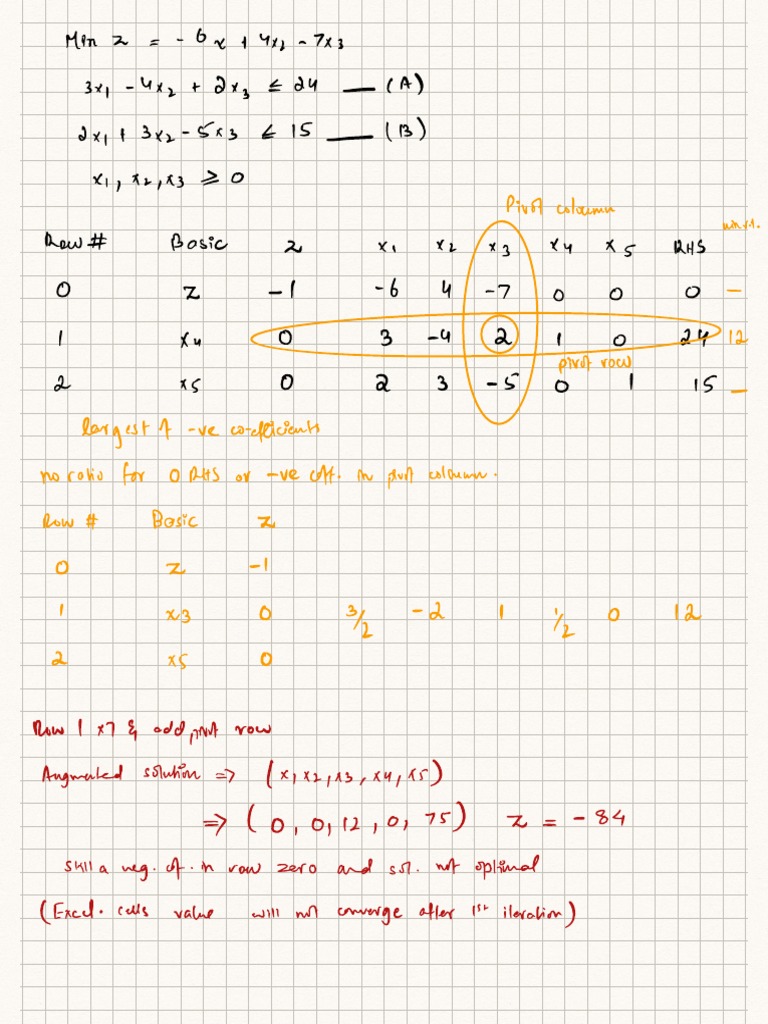 Min z = -6x + 4x2 - 7x3
3x1 - 4x2 + 2x3 ≤ 24 — (A)
2x1 + 3x2 - 5x3 ≤ 15 — (B)
x1, x2, x3 ≥ 0
Pivot coloumn
Row # Basic z x1 x2 x3 x4 x5 RHS min r.t.
0 z -1 -6 4 -7 0 0 0 -
1 x4 0 3 -4 2 1 0 24 12
pivot row
2 x5 0 2 3 -5 0 1 15 -
largest of -ve co-efficients
no ratio for 0 RHS or -ve coff. in pivot coloumn.
Row # Basic z
0 z -1
1 x3 0 3/2 -2 1 1/2 0 12
2 x5 0
Row 1 x7 & add pivot row
Augmented solution => (x1, x2, x3, x4, x5)
=> (0, 0, 12, 0, 75) z = -84
still a neg. cf. in row zero and sol. not optimal
(Excel. cells value will not converge after 1st iteration)